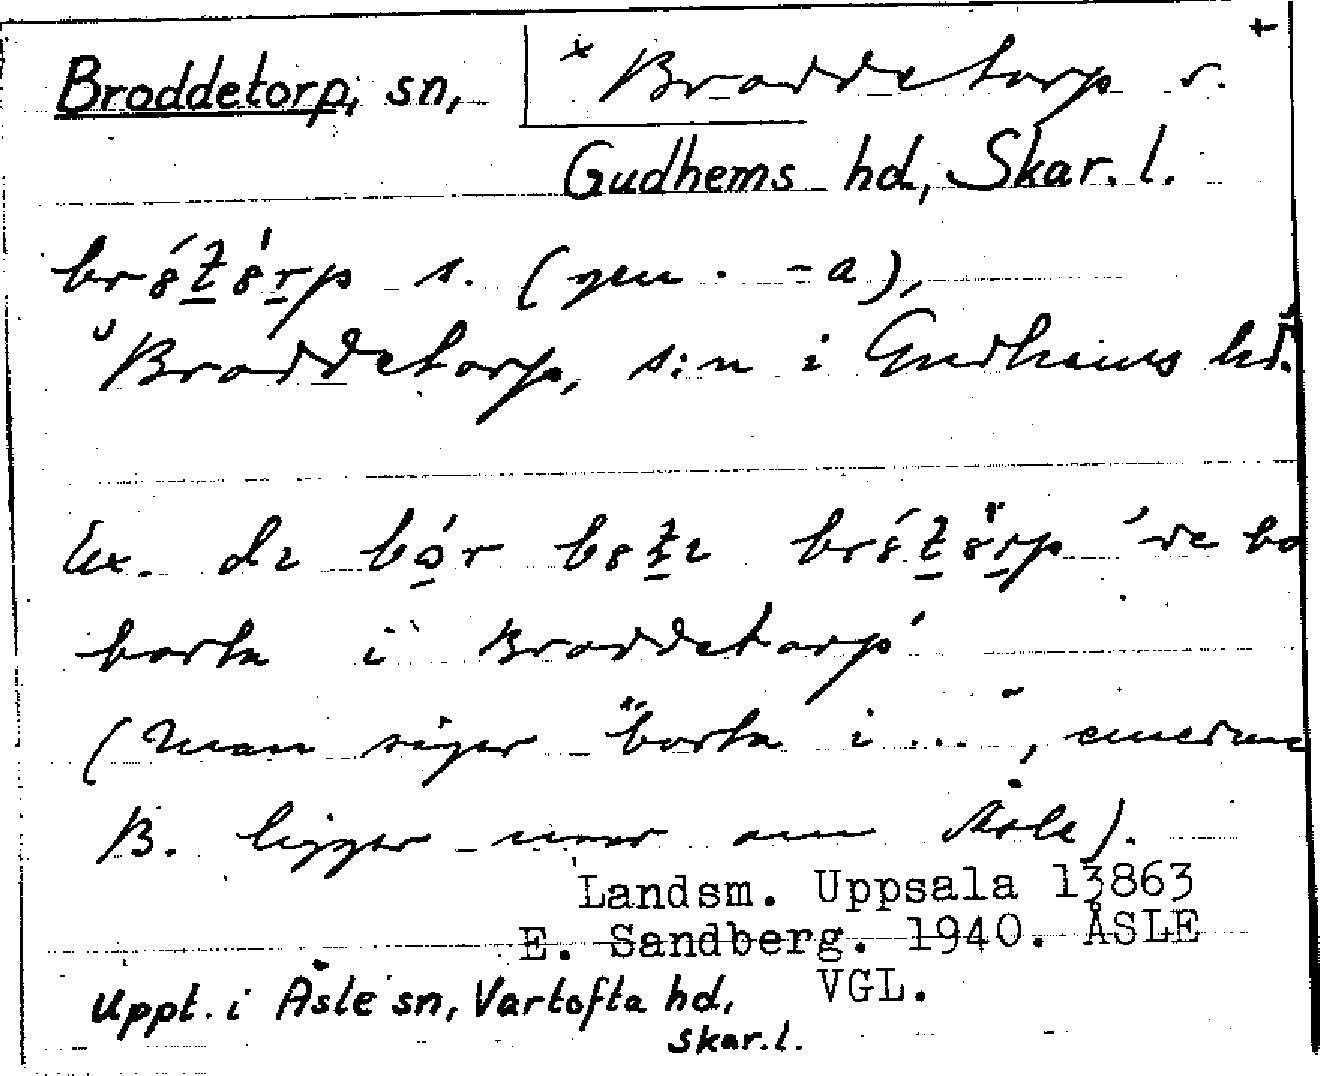 Broddetorp, sn, × Broddetorp s. +
Gudhems hd, Skar. l.
s. (gen. -a),
Broddetorp, s:n i Gudhems hd.
Ex. 'de bo
borta i Broddetorp'
(Man säger "borta i ...", emedan
B. ligger norr om Åsle).
Landsm. Uppsala 13863
E. Sandberg. 1940. ÅSLE
VGL.
Uppt. i Åsle sn, Vartofta hd,
Skar. l.